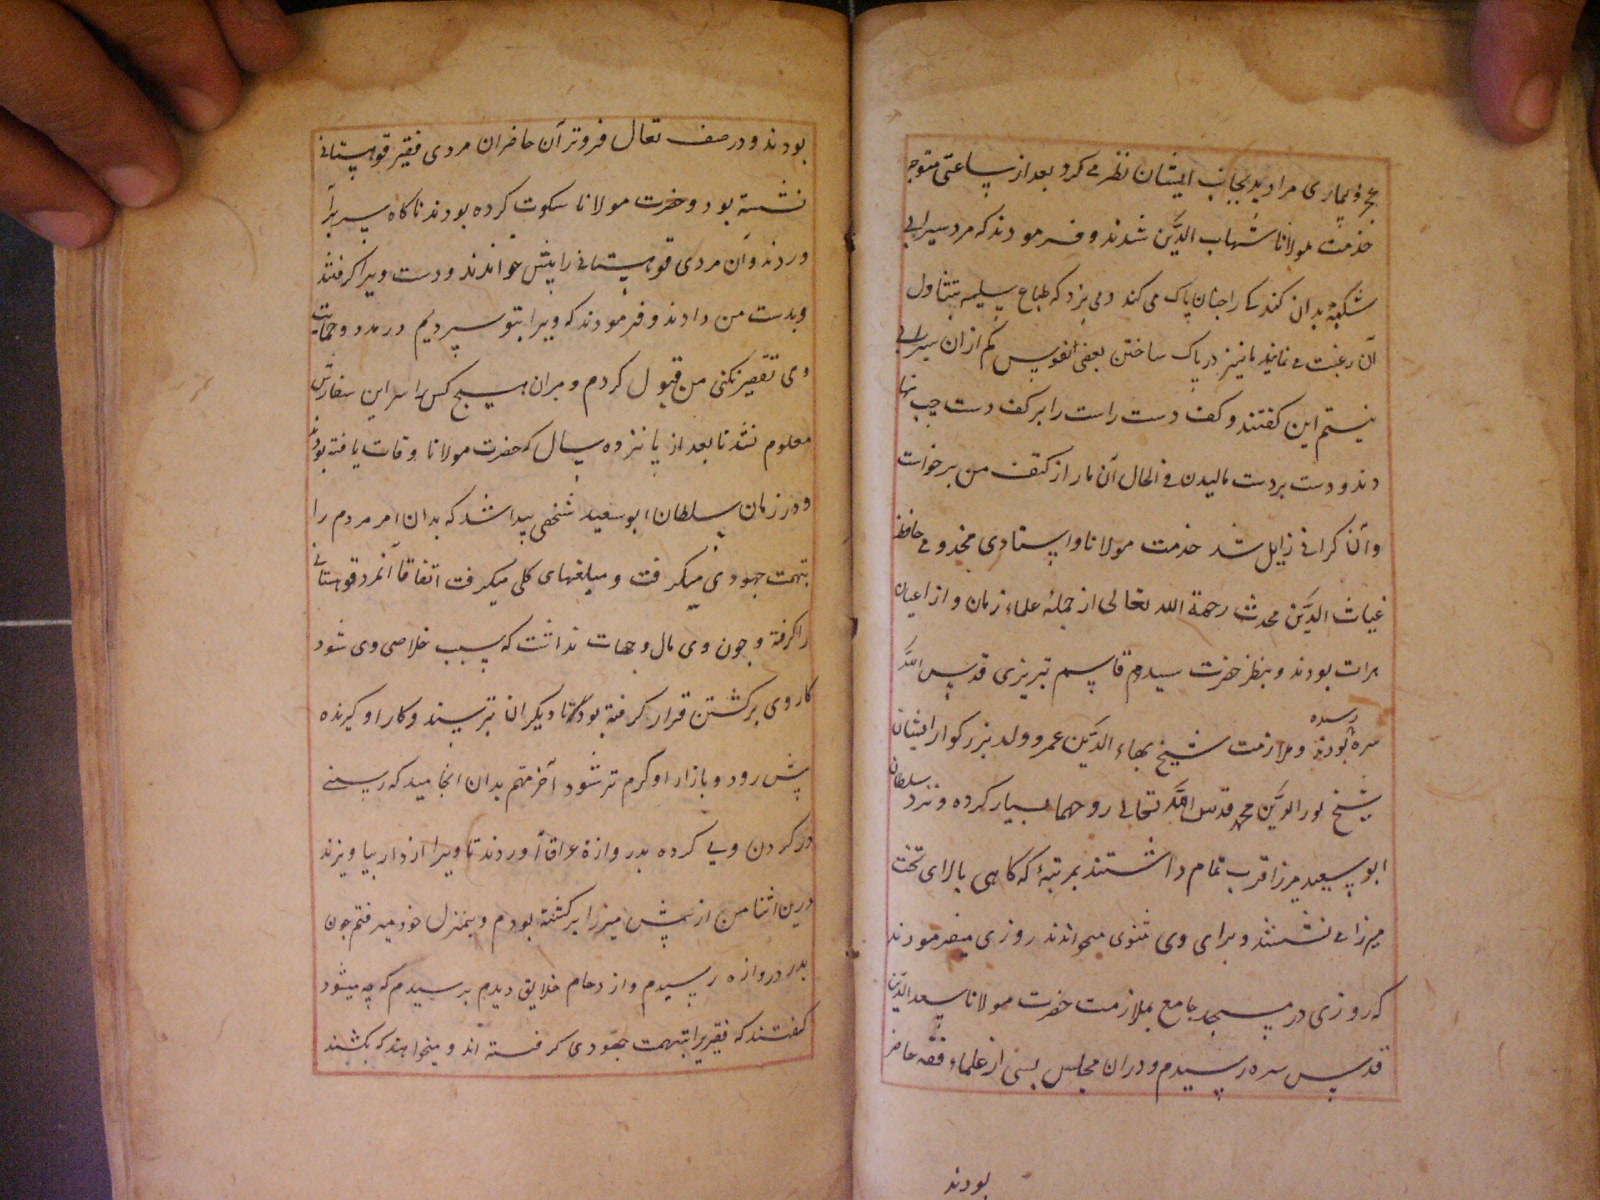 عجز و بیماری مرا دید بجانب ایشان نظر می کرد بعد از ساعتی متوجه
خدمت مولانا شهاب الدین شدند و فرمودند که مرد سیرابی
شکنبهٔ بدان کندکی را چنان پاک می کند و می پزد که طباع سلیمه بتناول
آن رغبت می نمایند ما نیز در پاک ساختن بعضی نفوس کم از ان سیرابی
نیستم این گفتند و کف دست راست را بر کف دست چپ نها
دند و دست بر دست مالیدن فی الحال آن بار از کتف من برخواست
و آن کرانی زایل شد خدمت مولانا و استادی مخدومی حافظ
غیاث الدین محدث رحمة الله تعالی از جملهٔ علماء زمان و از اعیان
هرات بودند و بنظر حضرت سید قاسم تبریزی قدس الله
سره رسیده بودند و ملازمت شیخ بهاء الدین عمر و ولد بزرکوار ایشان
شیخ نور الدین محمد قدس الله تعالی روحهما بسیار کرده و نزد سلطان
ابو سعید میرزا قرب تمام داشتند بمرتبهٔ که کاهی بالای تخت
میرزا می نشستند و برای وی مثنوی میخواندند روزی میفرمودند
که روزی در مسجد جامع بملازمت حضرت مولانا سعد الدین
قدس سره رسیدم و در ان مجلس بسی از علماء فقه حاضر
بودند
بودند و در صف نعال فروتر آن حاضران مردی فقیر قوهستانی
نشسته بود و حضرت مولانا سکوت کرده بودند ناکاه سر برآ
وردند و آن مردی قوهستانی را پیش خواندند و دست ویرا کرفتند
و بدست من دادند و فرمودند که ویرا بتو سپردیم در مدد و حمایت
وی تقصیر نکنی من قبول کردم و بران هیچ کس را سر این سفارش
معلوم نشد تا بعد از پانزده سال که حضرت مولانا وفات یافته بودند
و در زمان سلطان ابو سعید شخصی پیدا شد که بدان امر مردم را
بتهمت جهودی میکرفت و مبلغهای کلی میکرفت اتفاقا آنمرد قوهستانی
را کرفته و چون وی مال و جهات نداشت که سبب خلاصی وی شود
کار وی بر کشتن قرار کرفته بود تا دیکران بترسند و کار او کیرنده
پیش رود و بازار او کرم تر شود آخر مهم بدان انجامید که ریسمنی
در کردن وی کرده بدروازهٔ عراق آوردند تا ویرا از دار بیاویزند
درین اثنا من از پیش میرزا برکشته بودم و بمنزل خود میرفتم چون
بدر دروازه رسیدم و ازدحام خلایق دیدم پرسیدم که چه میشود
کفتند که فقیریرا بتهمت جهودی کرفته اند و میخواهند که بکشند